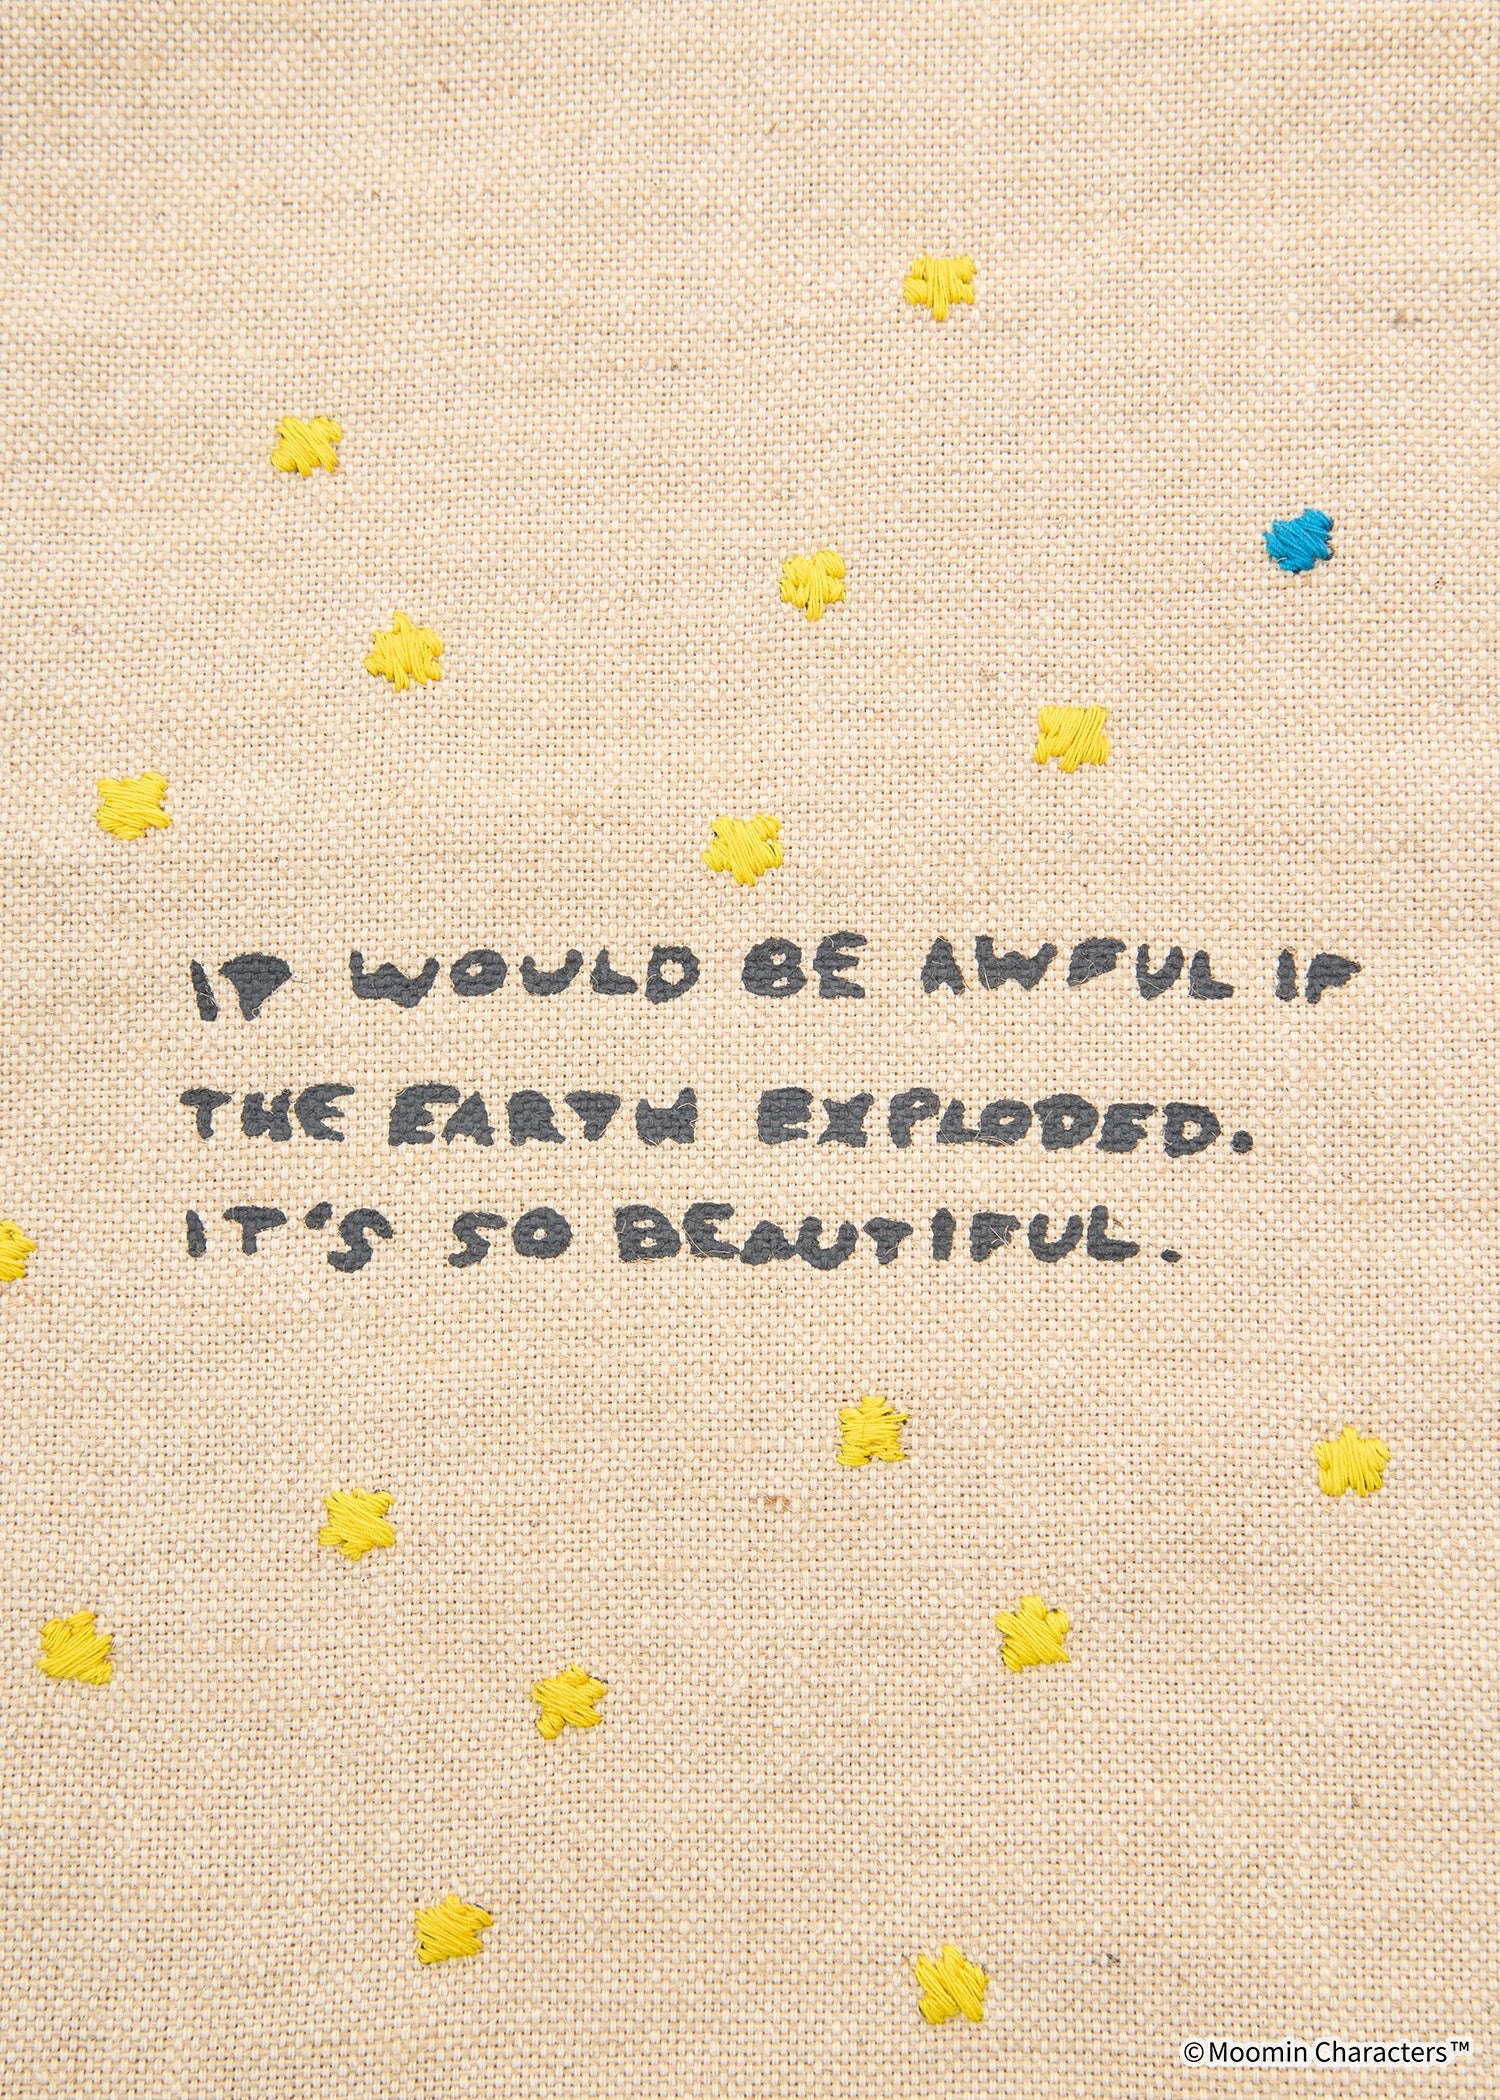 IT WOULD BE AWFUL IF
THE EARTH EXPLODED.
IT'S SO BEAUTIFUL.
© Moomin Characters™